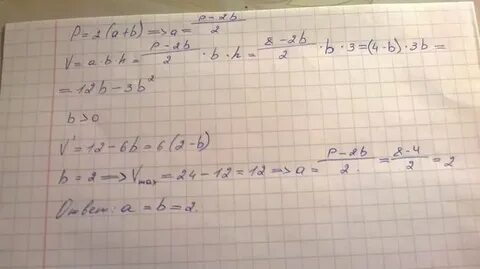 P = 2(a+b) => a = (P-2b)/2
V = a·b·h = (P-2b)/2 · b · h = (8-2b)/2 · b · 3 = (4-b)·3b =
= 12b - 3b²
b > 0
V' = 12 - 6b = 6(2-b)
b = 2 => Vmax = 24 - 12 = 12 => a = (P-2b)/2 = (8-4)/2 = 2
Ответ: a = b = 2.